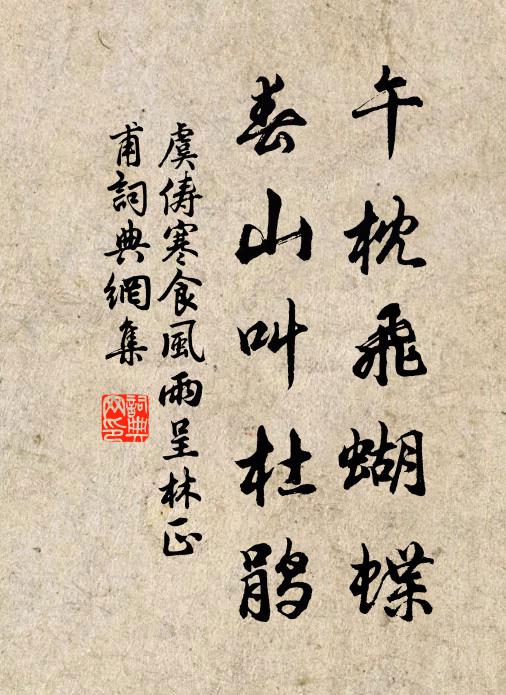 午枕飛蝴蝶
春山叫杜鵑
虞儔寒食風雨呈林正
甫詞典網集
詞典網印